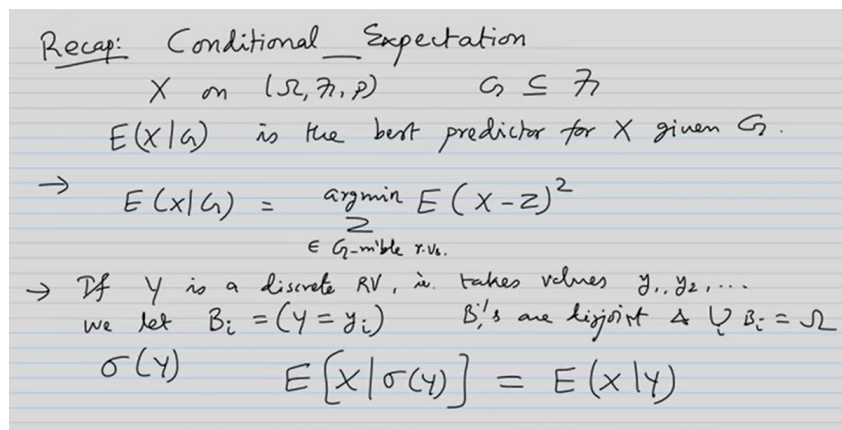 Recap: Conditional Expectation
X on (Ω, ℱ, P) G ⊆ ℱ
E(X|G) is the best predictor for X given G.
→ E(X|G) = argmin E(X-Z)²
Z
∈ G-m'ble r.vs.
→ If Y is a discrete RV, i.e. takes values y₁, y₂, ...
we let Bᵢ = (Y = yᵢ) Bᵢ's are disjoint & ∪ᵢ Bᵢ = Ω
σ(Y) E[X|σ(Y)] = E(X|Y)